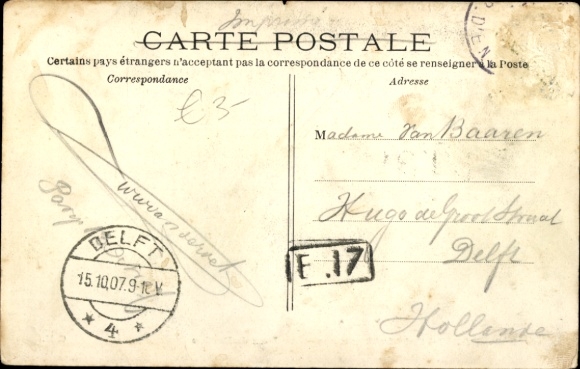 Imprimé
CARTE POSTALE
Certains pays étrangers n'acceptant pas la correspondance de ce côté se renseigner à la Poste
Correspondance
Adresse
€3-
Madame Van Baaren
Hugo de Groot Straat
Delft
Hollande
DELFT
15.10.07.9-12V
* 4 *
E.17
D'EN